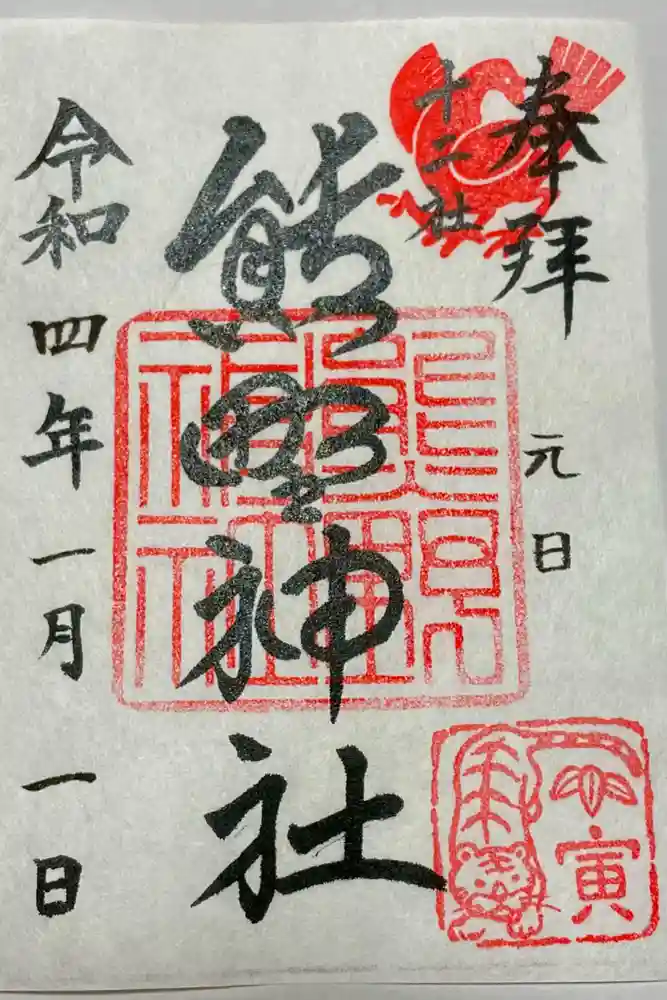 奉拝
元日
十二社
熊野神社
令和四年一月一日
寅